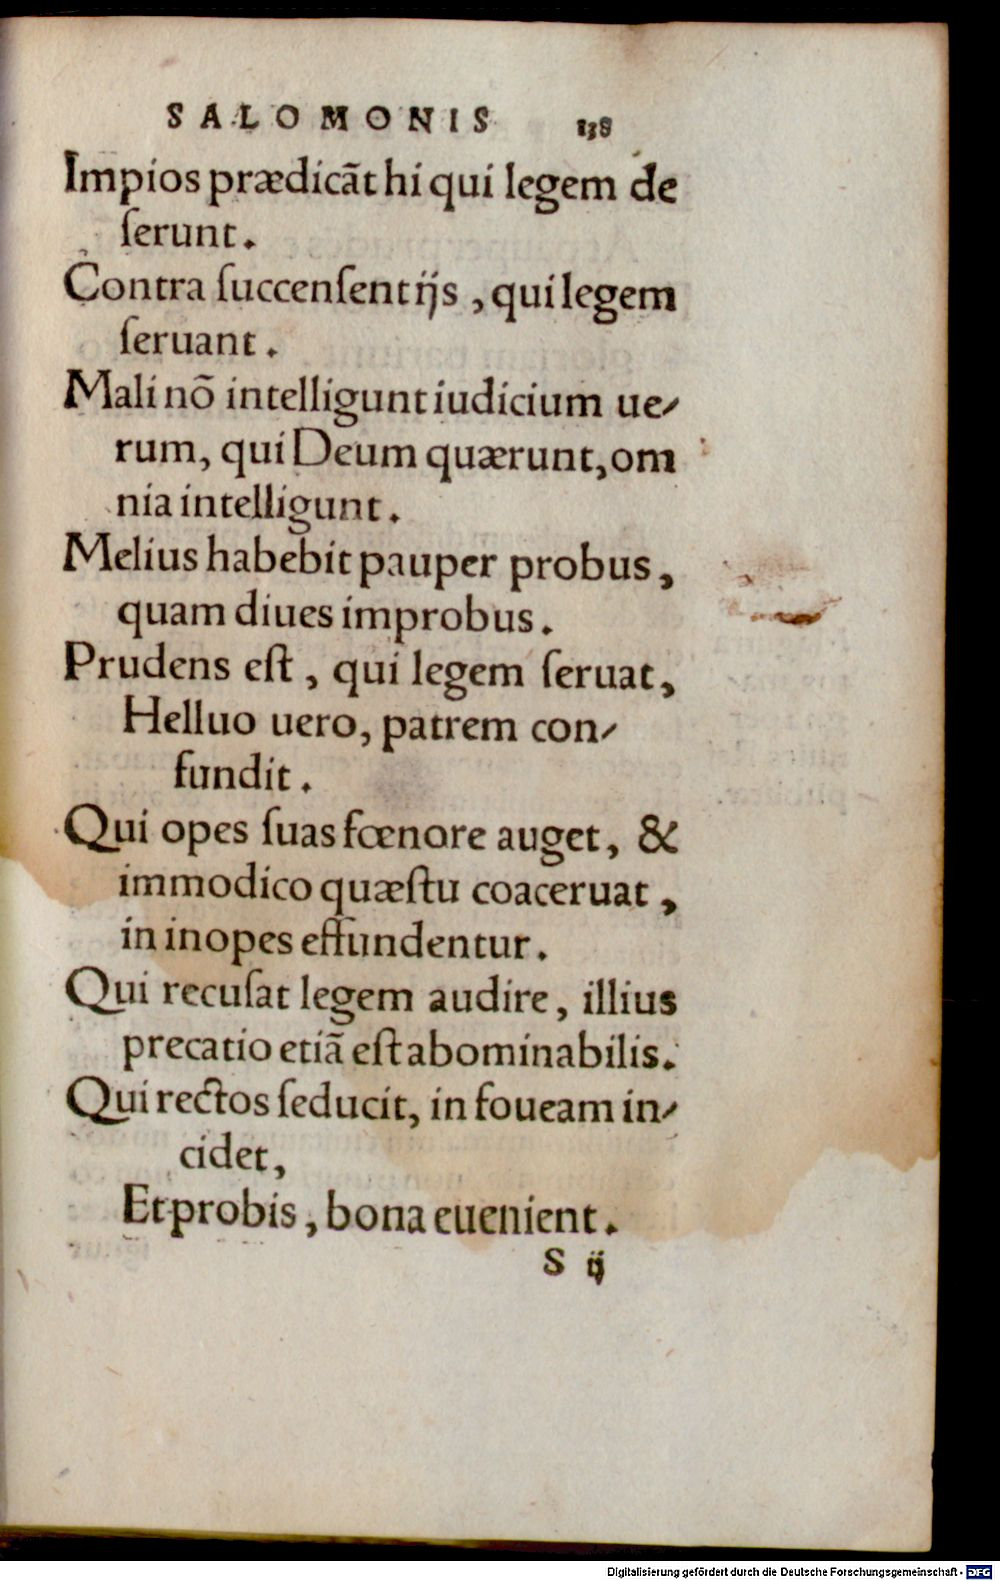 SALOMONIS 138
Impios prædicāt hi qui legem de
ſerunt.
Contra ſuccenſent ijs, qui legem
ſeruant.
Mali nō intelligunt iudicium ue⸗
rum, qui Deum quærunt, om
nia intelligunt.
Melius habebit pauper probus,
quam diues improbus.
Prudens eſt, qui legem ſeruat,
Helluo uero, patrem con⸗
fundit.
Qui opes ſuas fœnore auget, &
immodico quæſtu coaceruat,
in inopes effundentur.
Qui recuſat legem audire, illius
precatio etiā eſt abominabilis.
Qui rectos ſeducit, in foueam in⸗
cidet,
Et probis, bona euenient.
S ij
Digitalisierung gefördert durch die Deutsche Forschungsgemeinschaft - DFG